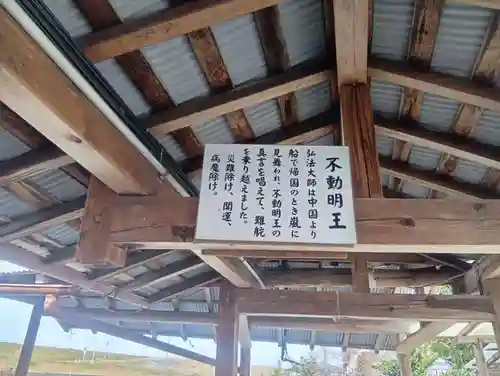 不動明王
弘法大師は中国より
船で帰国のとき嵐に
見まわれ、不動明王の
真言を唱えて、難航
を乗り越えました。
災難除け、開運、
病魔除け。